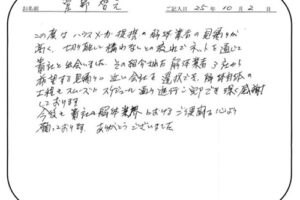 お名前 菅野 智元 ご記入日 25年10月2日
この度はハウスメーカー提携の解体業者の見積りが
高く、切り離し構わないとの返答でネットを通じて
貴社と出会いました。その紹介頂いた解体業者3社から
希望する見積りに近い会社を選択でき、解体作業の
工程もスムーズにスケジュール通り進行し完了でき深く感謝
しております
今後も貴社の解体業界におけるご発展を心より
願っております ありがとうございました